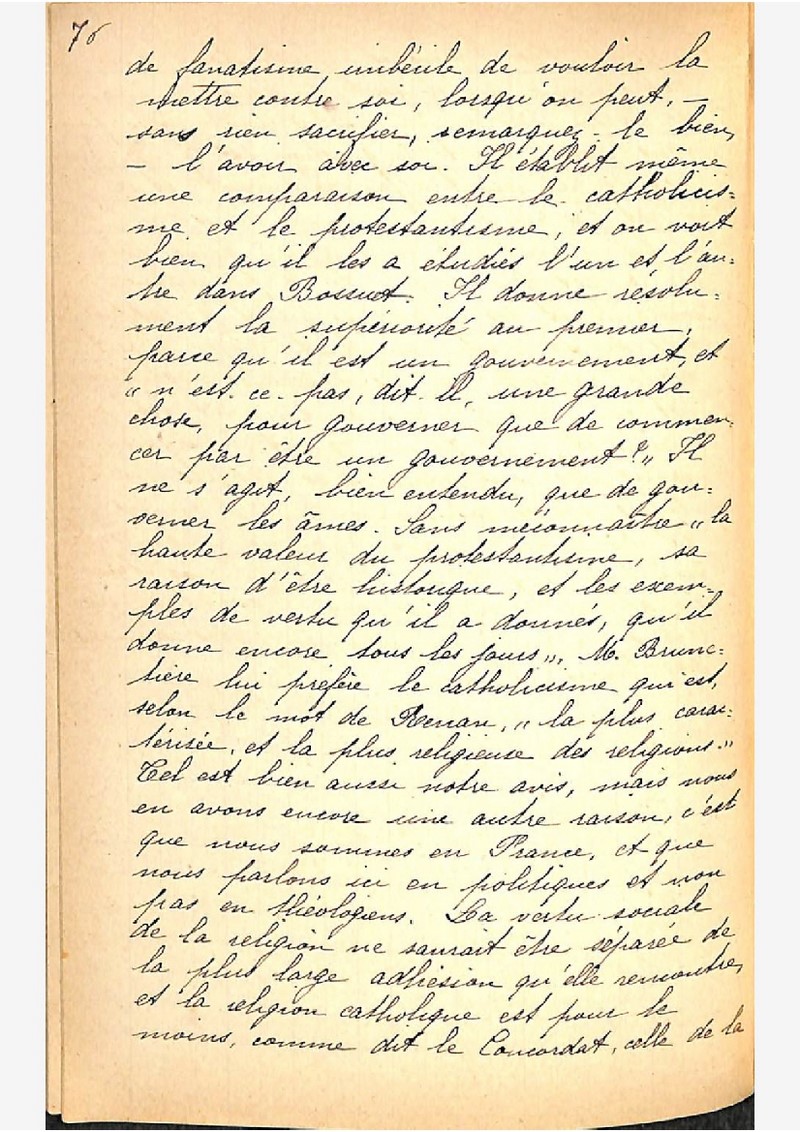 76
de fanatisme imbécile de vouloir la
mettre contre soi, lorsqu'on peut, —
sans rien sacrifier, remarquez-le bien,
— l'avoir avec soi. Il établit même
une comparaison entre le catholicis=
me et le protestantisme, et on voit
bien qu'il les a étudiés l'un et l'au=
tre dans Bossuet. Il donne résolu=
ment la supériorité au premier,
parce qu'il est un gouvernement, et
"n'est-ce-pas, dit-il, une grande
chose, pour gouverner que de commen=
cer par être un gouvernement?" Il
ne s'agit, bien entendu, que de gou=
verner les âmes. Sans méconnaître "la
haute valeur du protestantisme, sa
raison d'être historique, et les exem=
ples de vertu qu'il a donnés, qu'il
donne encore tous les jours", M. Brune=
tière lui préfère le catholicisme qui est,
selon le mot de Renan, "la plus carac=
térisée, et la plus religieuse des religions."
Tel est bien aussi notre avis, mais nous
en avons encore une autre raison, c'est
que nous sommes en France, et que
nous parlons ici en politiques et non
pas en théologiens. La vertu sociale
de la religion ne saurait être séparée de
la plus large adhésion qu'elle rencontre,
et la religion catholique est pour le
moins, comme dit le Concordat, celle de la